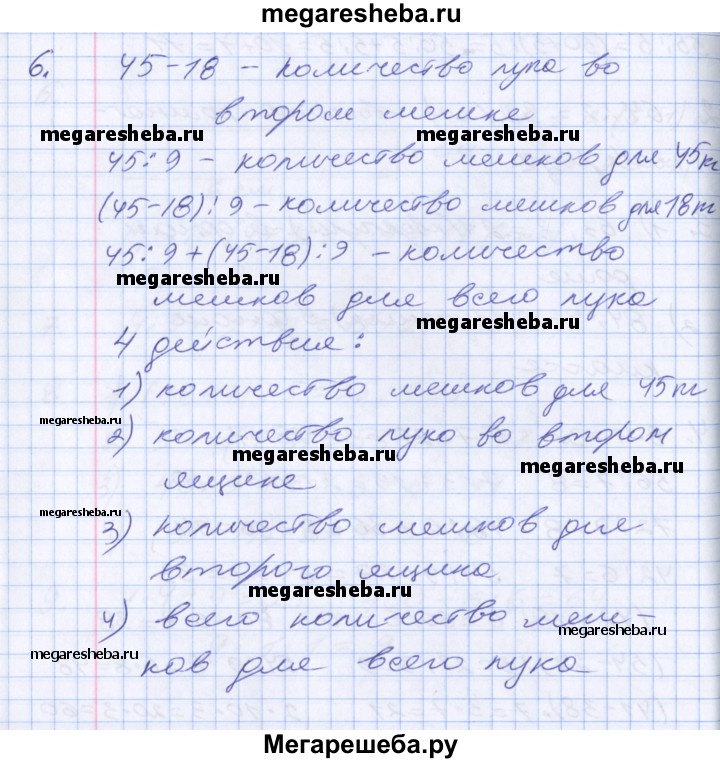 megaresheba.ru
6. 45-18 - количество лука во
втором мешке
megaresheba.ru megaresheba.ru
45:9 - количество мешков для 45кг
(45-18):9 - количество мешков для 18кг
45:9+(45-18):9 - количество
megaresheba.ru
мешков для всего лука
megaresheba.ru
4 действия:
1) количество мешков для 45кг
megaresheba.ru
2) количество луко во втором
megaresheba.ru megaresheba.ru
ящике
megaresheba.ru
3) количество мешков для
второго ящика
megaresheba.ru
4) всего количество меш-
megaresheba.ru
megaresheba.ru
ков для всего лука
Мегарешеба.ру